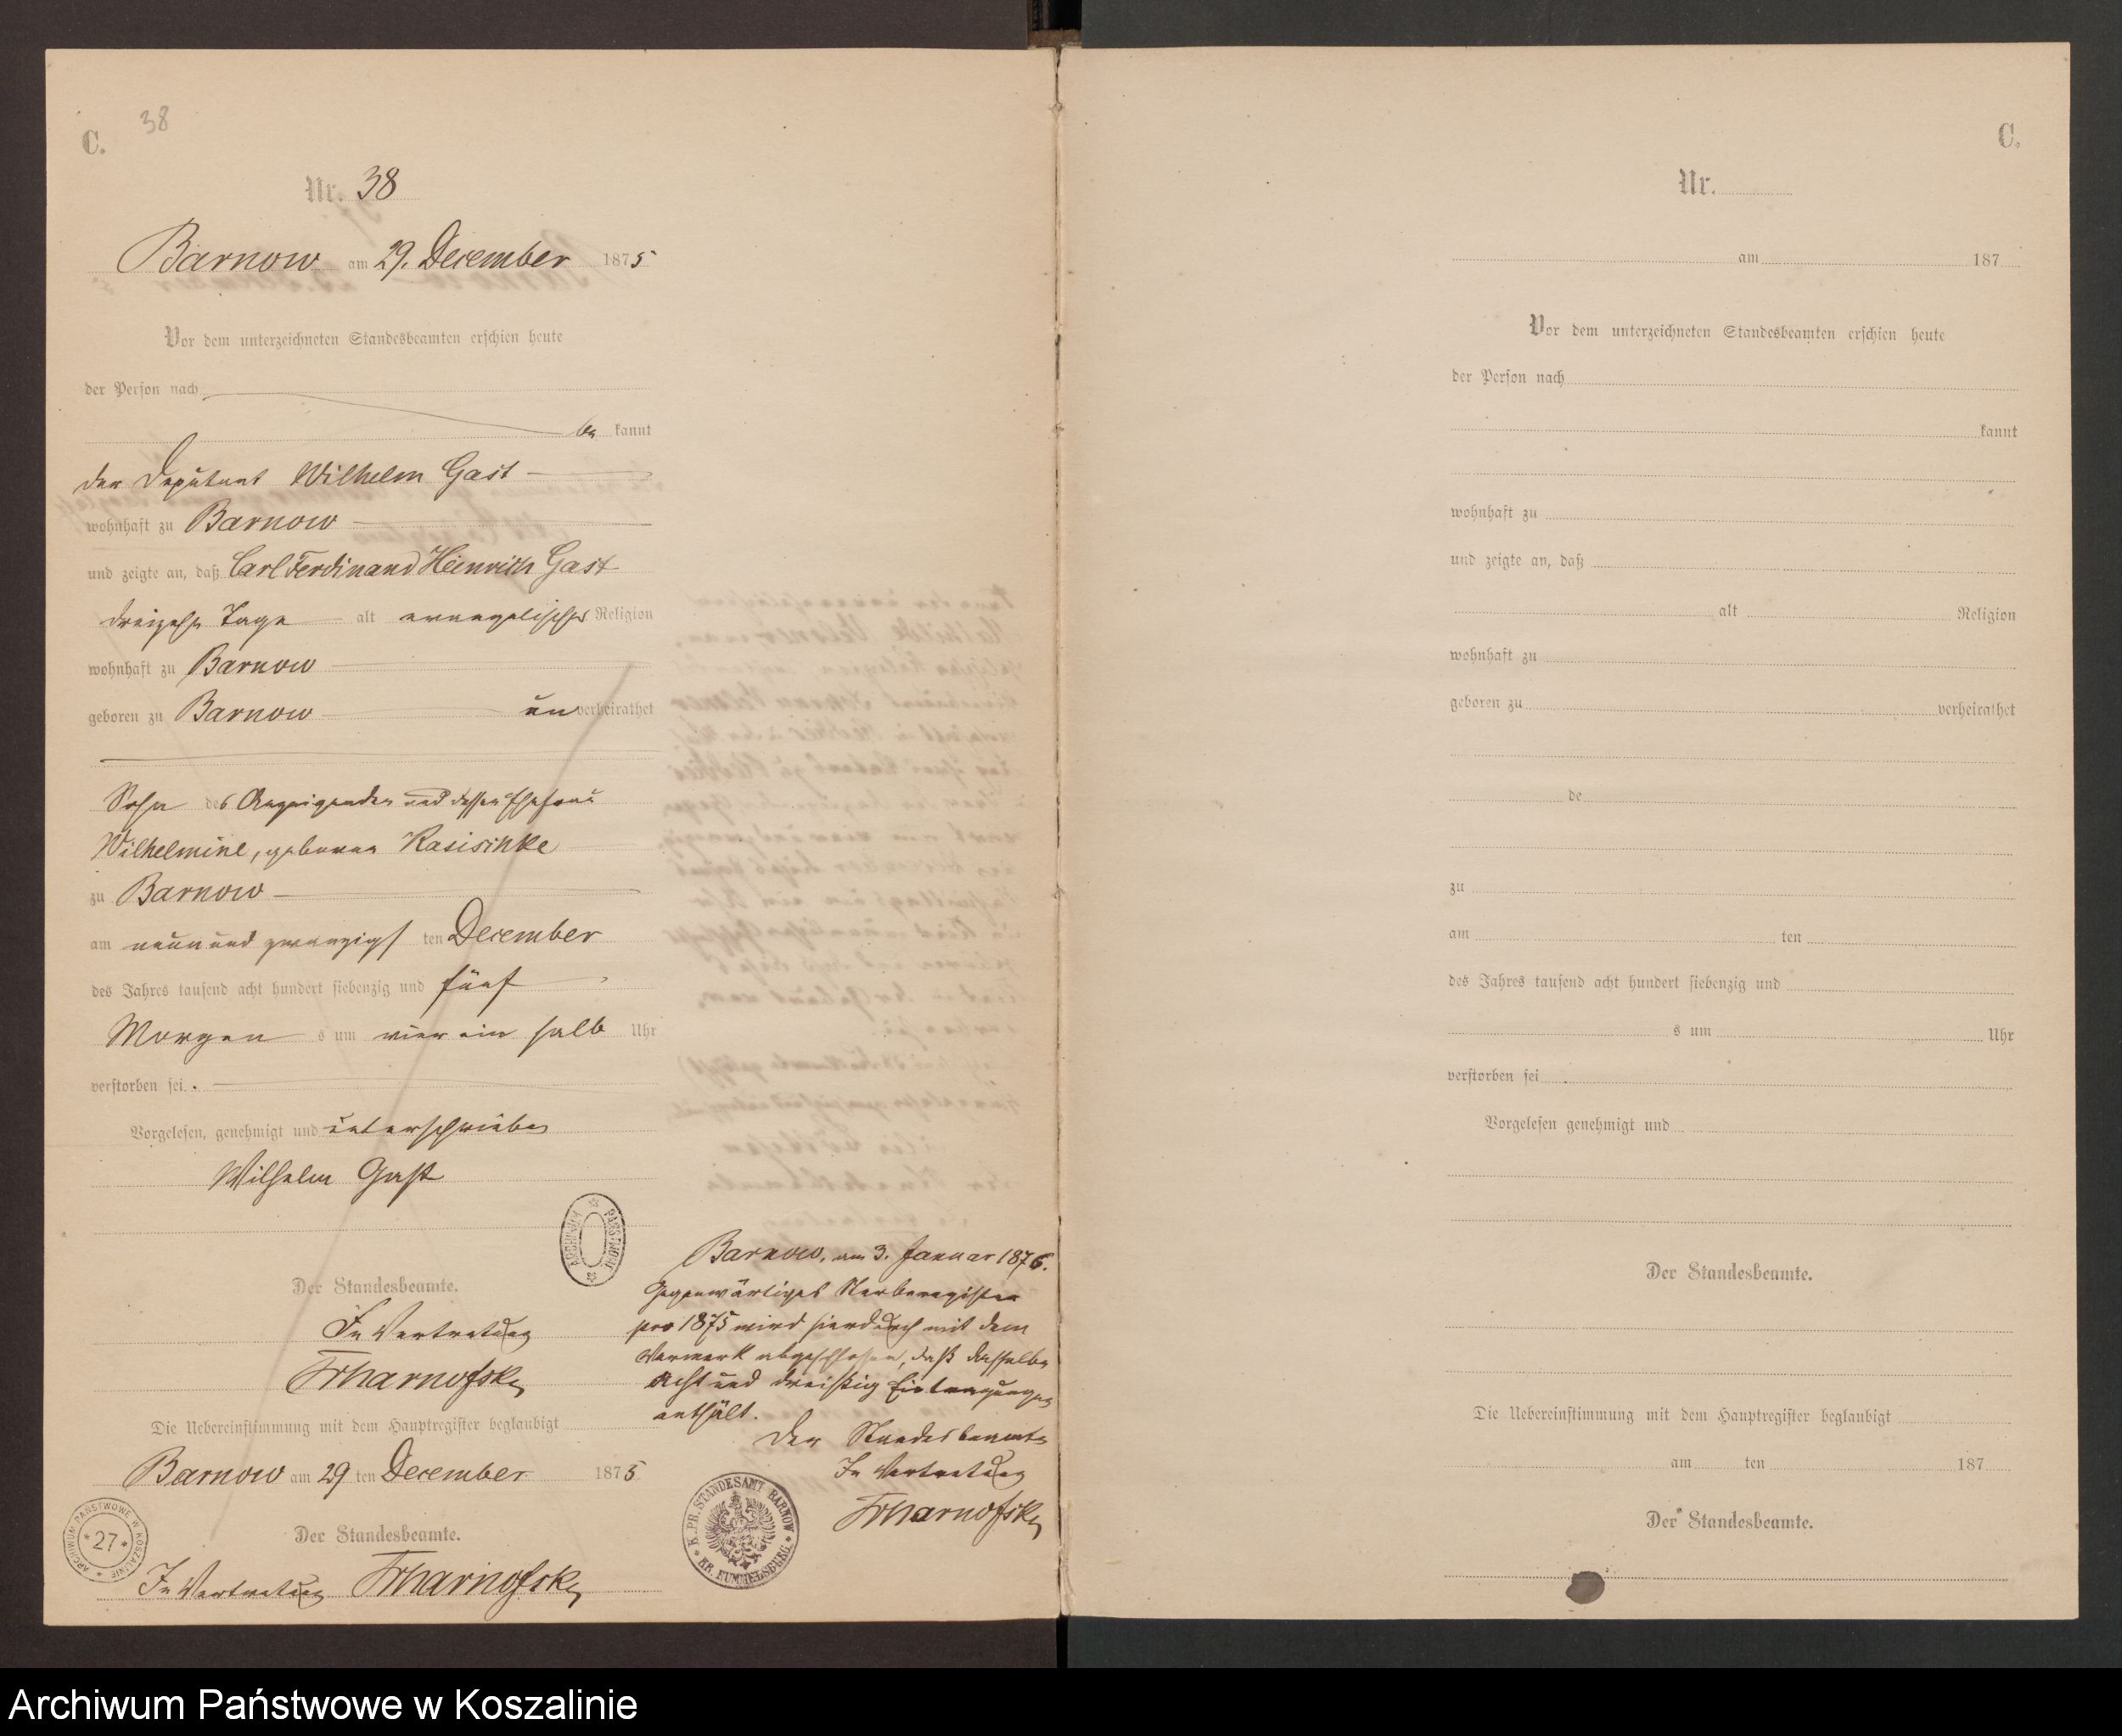 C.
38
Nr. 38
Barnow am 29. December 1875
Vor dem unterzeichneten Standesbeamten erschien heute
der Person nach
be kannt
der Deputant Wilhelm Gast
wohnhaft zu Barnow
und zeigte an, daß Carl Ferdinand Heinrich Gast
dreizehn Tage alt evangelischer Religion
wohnhaft zu Barnow
geboren zu Barnow unverheirathet
Sohn des Anzeigenden und dessen Ehefrau
Wilhelmine, geborene
zu Barnow
am neun und zwanzigs ten December
des Jahres tausend acht hundert siebenzig und fünf
Morgen s um vier ein halb Uhr
verstorben sei.
Vorgelesen, genehmigt und unterschrieben
Wilhelm Gast
ARCHIWUM PAŃSTWOWE
Der Standesbeamte.
In Vertretung
Die Uebereinstimmung mit dem Hauptregister beglaubigt
Barnow am 29 ten December 1875
Der Standesbeamte.
In Vertretung
ARCHIWUM PAŃSTWOWE W KOSZALINIE
*27*
Barnow, am 3. Januar 1876.
Gegenwärtiges Sterberegister
pro 1875 wird hierdurch mit dem
Vermerk abgeschlossen, daß dasselbe
acht und dreißig Eintragungen
enthält.
Der Standesbeamte
In Vertretung
K. PR. STANDESAMT BARNOW * KR. RUMMELSBURG *
C.
Nr.
am 187
Vor dem unterzeichneten Standesbeamten erschien heute
der Person nach
kannt
wohnhaft zu
und zeigte an, daß
alt Religion
wohnhaft zu
geboren zu verheirathet
de
zu
am ten
des Jahres tausend acht hundert siebenzig und
s um Uhr
verstorben sei
Vorgelesen genehmigt und
Der Standesbeamte.
Die Uebereinstimmung mit dem Hauptregister beglaubigt
am ten 187
Der Standesbeamte.
Archiwum Państwowe w Koszalinie